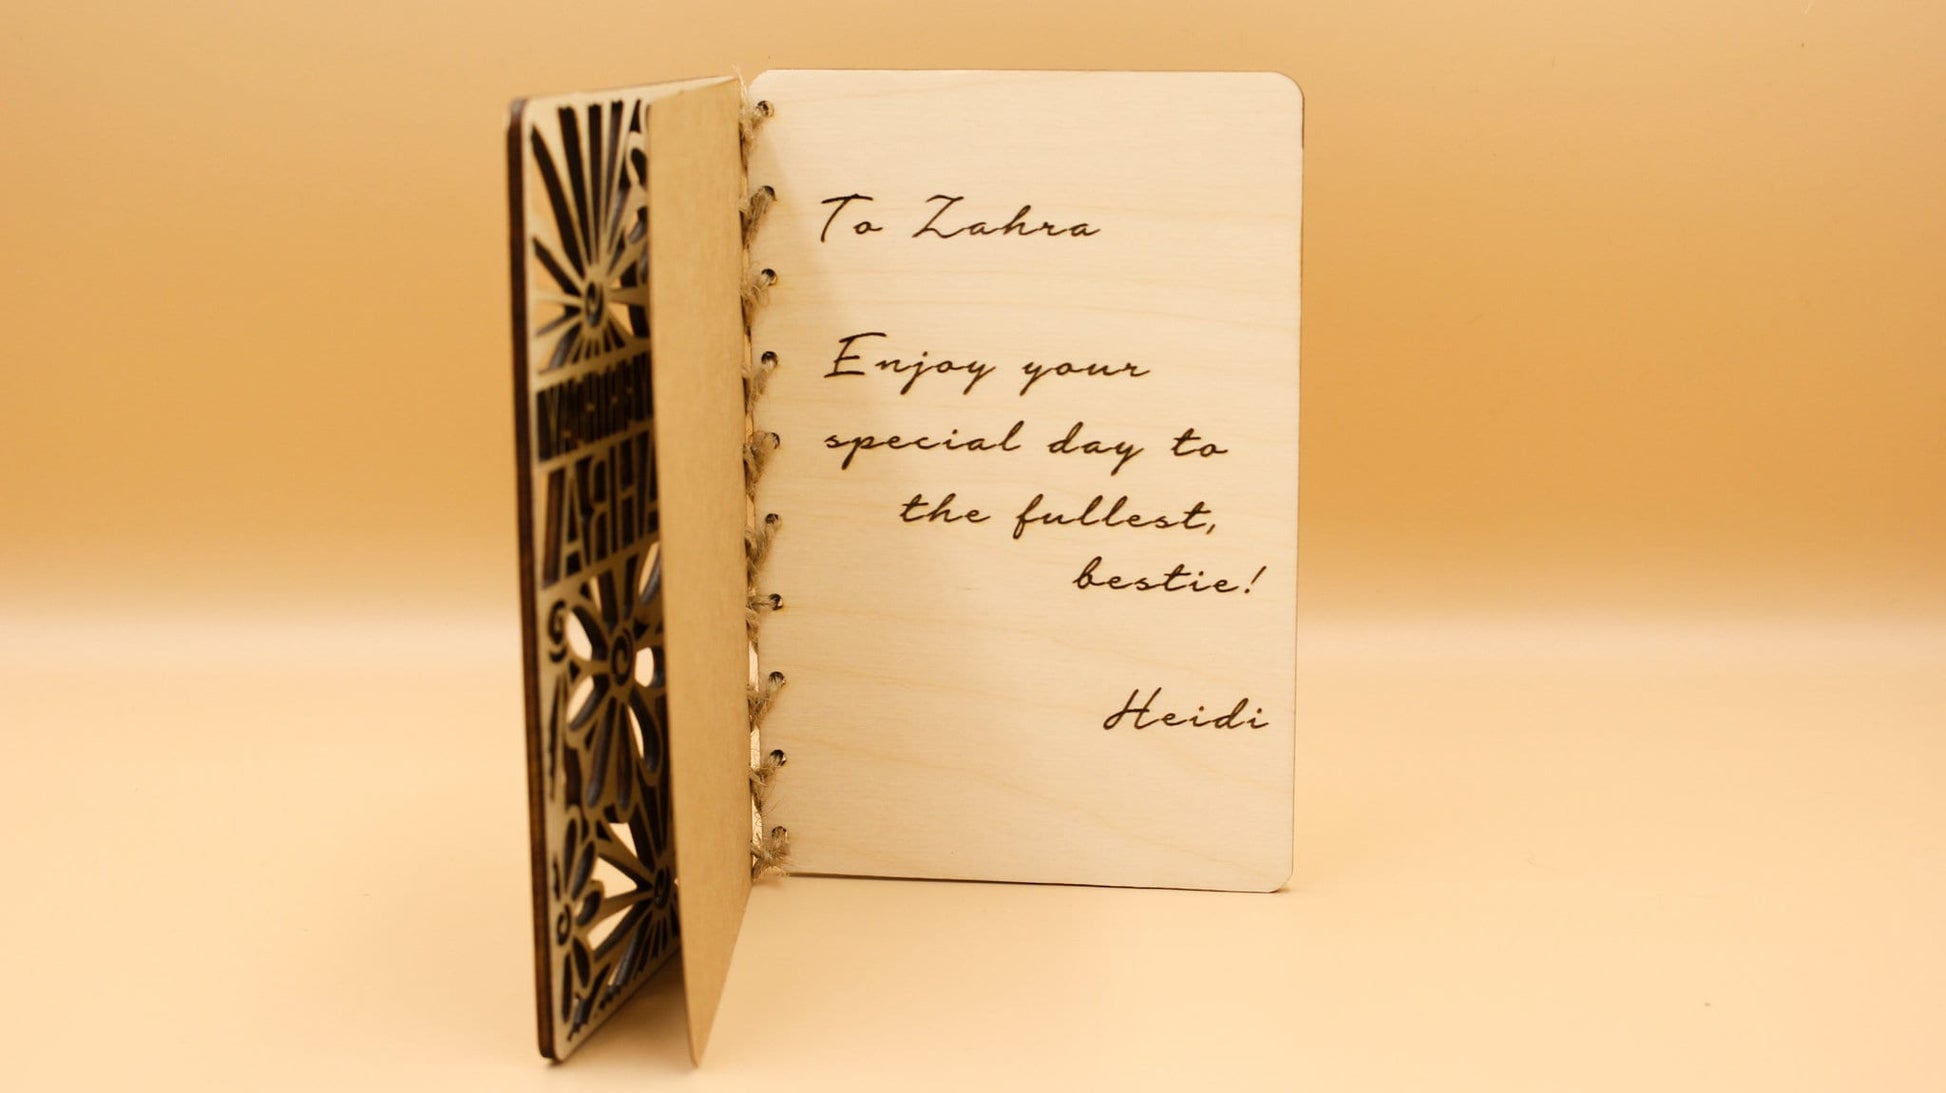 To Zahra
Enjoy your
special day to
the fullest,
bestie!
Heidi